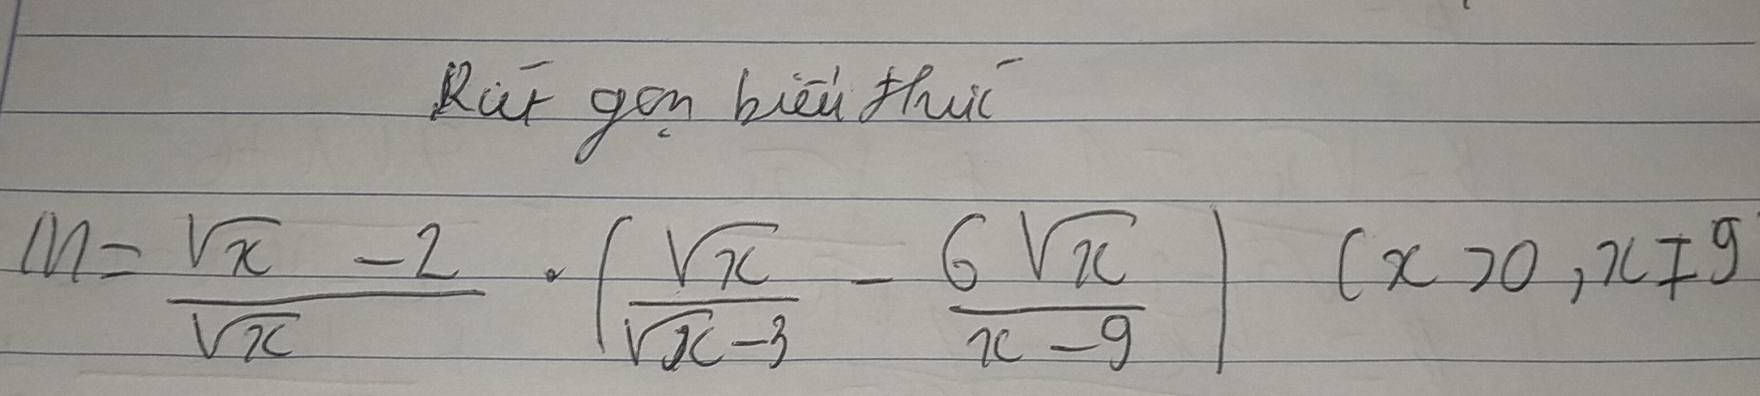 Rút gọn biểu thức
M = \frac{\sqrt{x} - 2}{\sqrt{x}} . \left( \frac{\sqrt{x}}{\sqrt{x} - 3} - \frac{6\sqrt{x}}{x - 9} \right) (x > 0, x ≠ 9